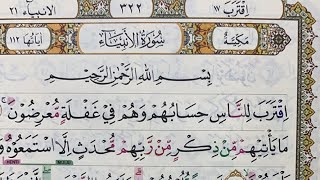 اِقْتَرَبَ ١٧
٣٢٢
الانبیاء ٢١
مَكِّيَّة
سُورَةُ الْأَنْبِيَاءِ
آياتها ١١٢
بِسْمِ اللهِ الرَّحْمٰنِ الرَّحِيْمِ
اِقْتَرَبَ لِلنَّاسِ حِسَابُهُمْ وَهُمْ فِيْ غَفْلَةٍ مُّعْرِضُوْنَ
مَا يَأْتِيْهِمْ مِّنْ ذِكْرٍ مِّنْ رَّبِّهِمْ مُّحْدَثٍ اِلَّا اسْتَمَعُوْهُ وَ